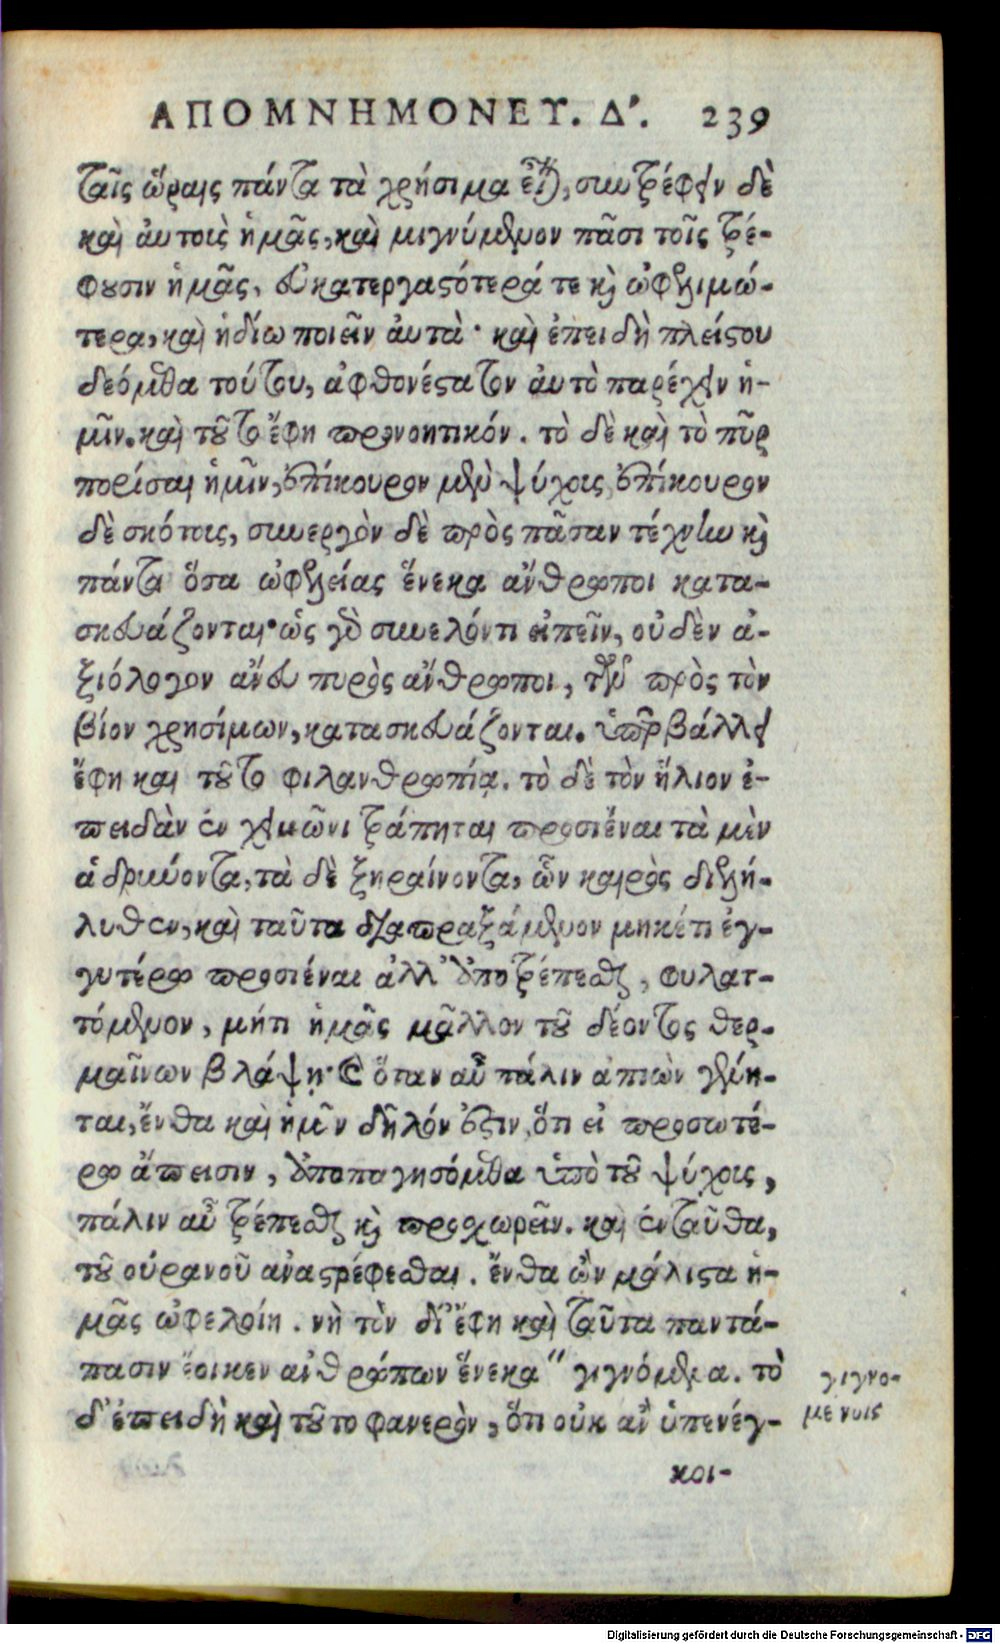 ΑΠΟΜΝΗΜΟΝΕΥ. Δ'. 239
ταῖς ὥραις πάντα τὰ χρήσιμα συντρέφειν δὲ
καὶ αὐτοὺς ἡμᾶς, καὶ μιγνύμενον πᾶσι τοῖς τρέ-
φουσιν ἡμᾶς, εὐκατεργαστότερά τε καὶ ὠφελιμώ-
τερα, καὶ ἡδίω ποιεῖν αὐτὰ· καὶ ἐπειδὴ πλείστου
δεόμεθα τούτου, ἀφθονέστατον αὐτὸ παρέχειν ἡ-
μῖν. καὶ τοῦτο ἔφη προνοητικόν. τὸ δὲ καὶ τὸ πῦρ
πορίσαι ἡμῖν, ἐπίκουρον μὲν ψύχους, ἐπίκουρον
δὲ σκότους, συνεργὸν δὲ πρὸς πᾶσαν τέχνην καὶ
πάντα ὅσα ὠφελείας ἕνεκα ἄνθρωποι κατα-
σκευάζονται· ὡς γὰρ συνελόντι εἰπεῖν, οὐδὲν ἀ-
ξιόλογον ἄνευ πυρὸς ἄνθρωποι, τῶν πρὸς τὸν
βίον χρησίμων, κατασκευάζονται. ὑπερβάλλει
ἔφη καὶ τοῦτο φιλανθρωπίᾳ. τὸ δὲ τὸν ἥλιον ἐ-
πειδὰν ἐν χειμῶνι τράπηται προσιέναι τὰ μὲν
ἁδρύνοντα, τὰ δὲ ξηραίνοντα, ὧν καιρὸς διελή-
λυθεν, καὶ ταῦτα διαπραξάμενον μηκέτι ἐγ-
γυτέρω προσιέναι ἀλλ' ἀποτρέπεσθαι, φυλατ-
τόμενον, μήτι ἡμᾶς μᾶλλον τοῦ δέοντος θερ-
μαίνων βλάψῃ· καὶ ὅταν αὖ πάλιν ἀπιὼν γένη-
ται, ἔνθα καὶ ἡμῖν δῆλόν ἐστιν, ὅτι εἰ προσωτέ-
ρω ἄπεισιν, ἀποπαγησόμεθα ὑπὸ τοῦ ψύχους,
πάλιν αὖ τρέπεσθαι καὶ προχωρεῖν. καὶ ἐνταῦθα,
τοῦ οὐρανοῦ ἀναστρέφεσθαι. ἔνθα ὢν μάλιστα ἡ-
μᾶς ὠφελοίη. νὴ τὸν δί' ἔφη καὶ ταῦτα παντά-
πασιν ἔοικεν ἀνθρώπων ἕνεκα " γιγνόμενα. τὸ
δ' ἐπειδὴ καὶ τοῦτο φανερὸν, ὅτι οὐκ ἂν ὑπενέγ-
κοι-
γιγνο-
μένοις
Digitalisierung gefördert durch die Deutsche Forschungsgemeinschaft - DFG